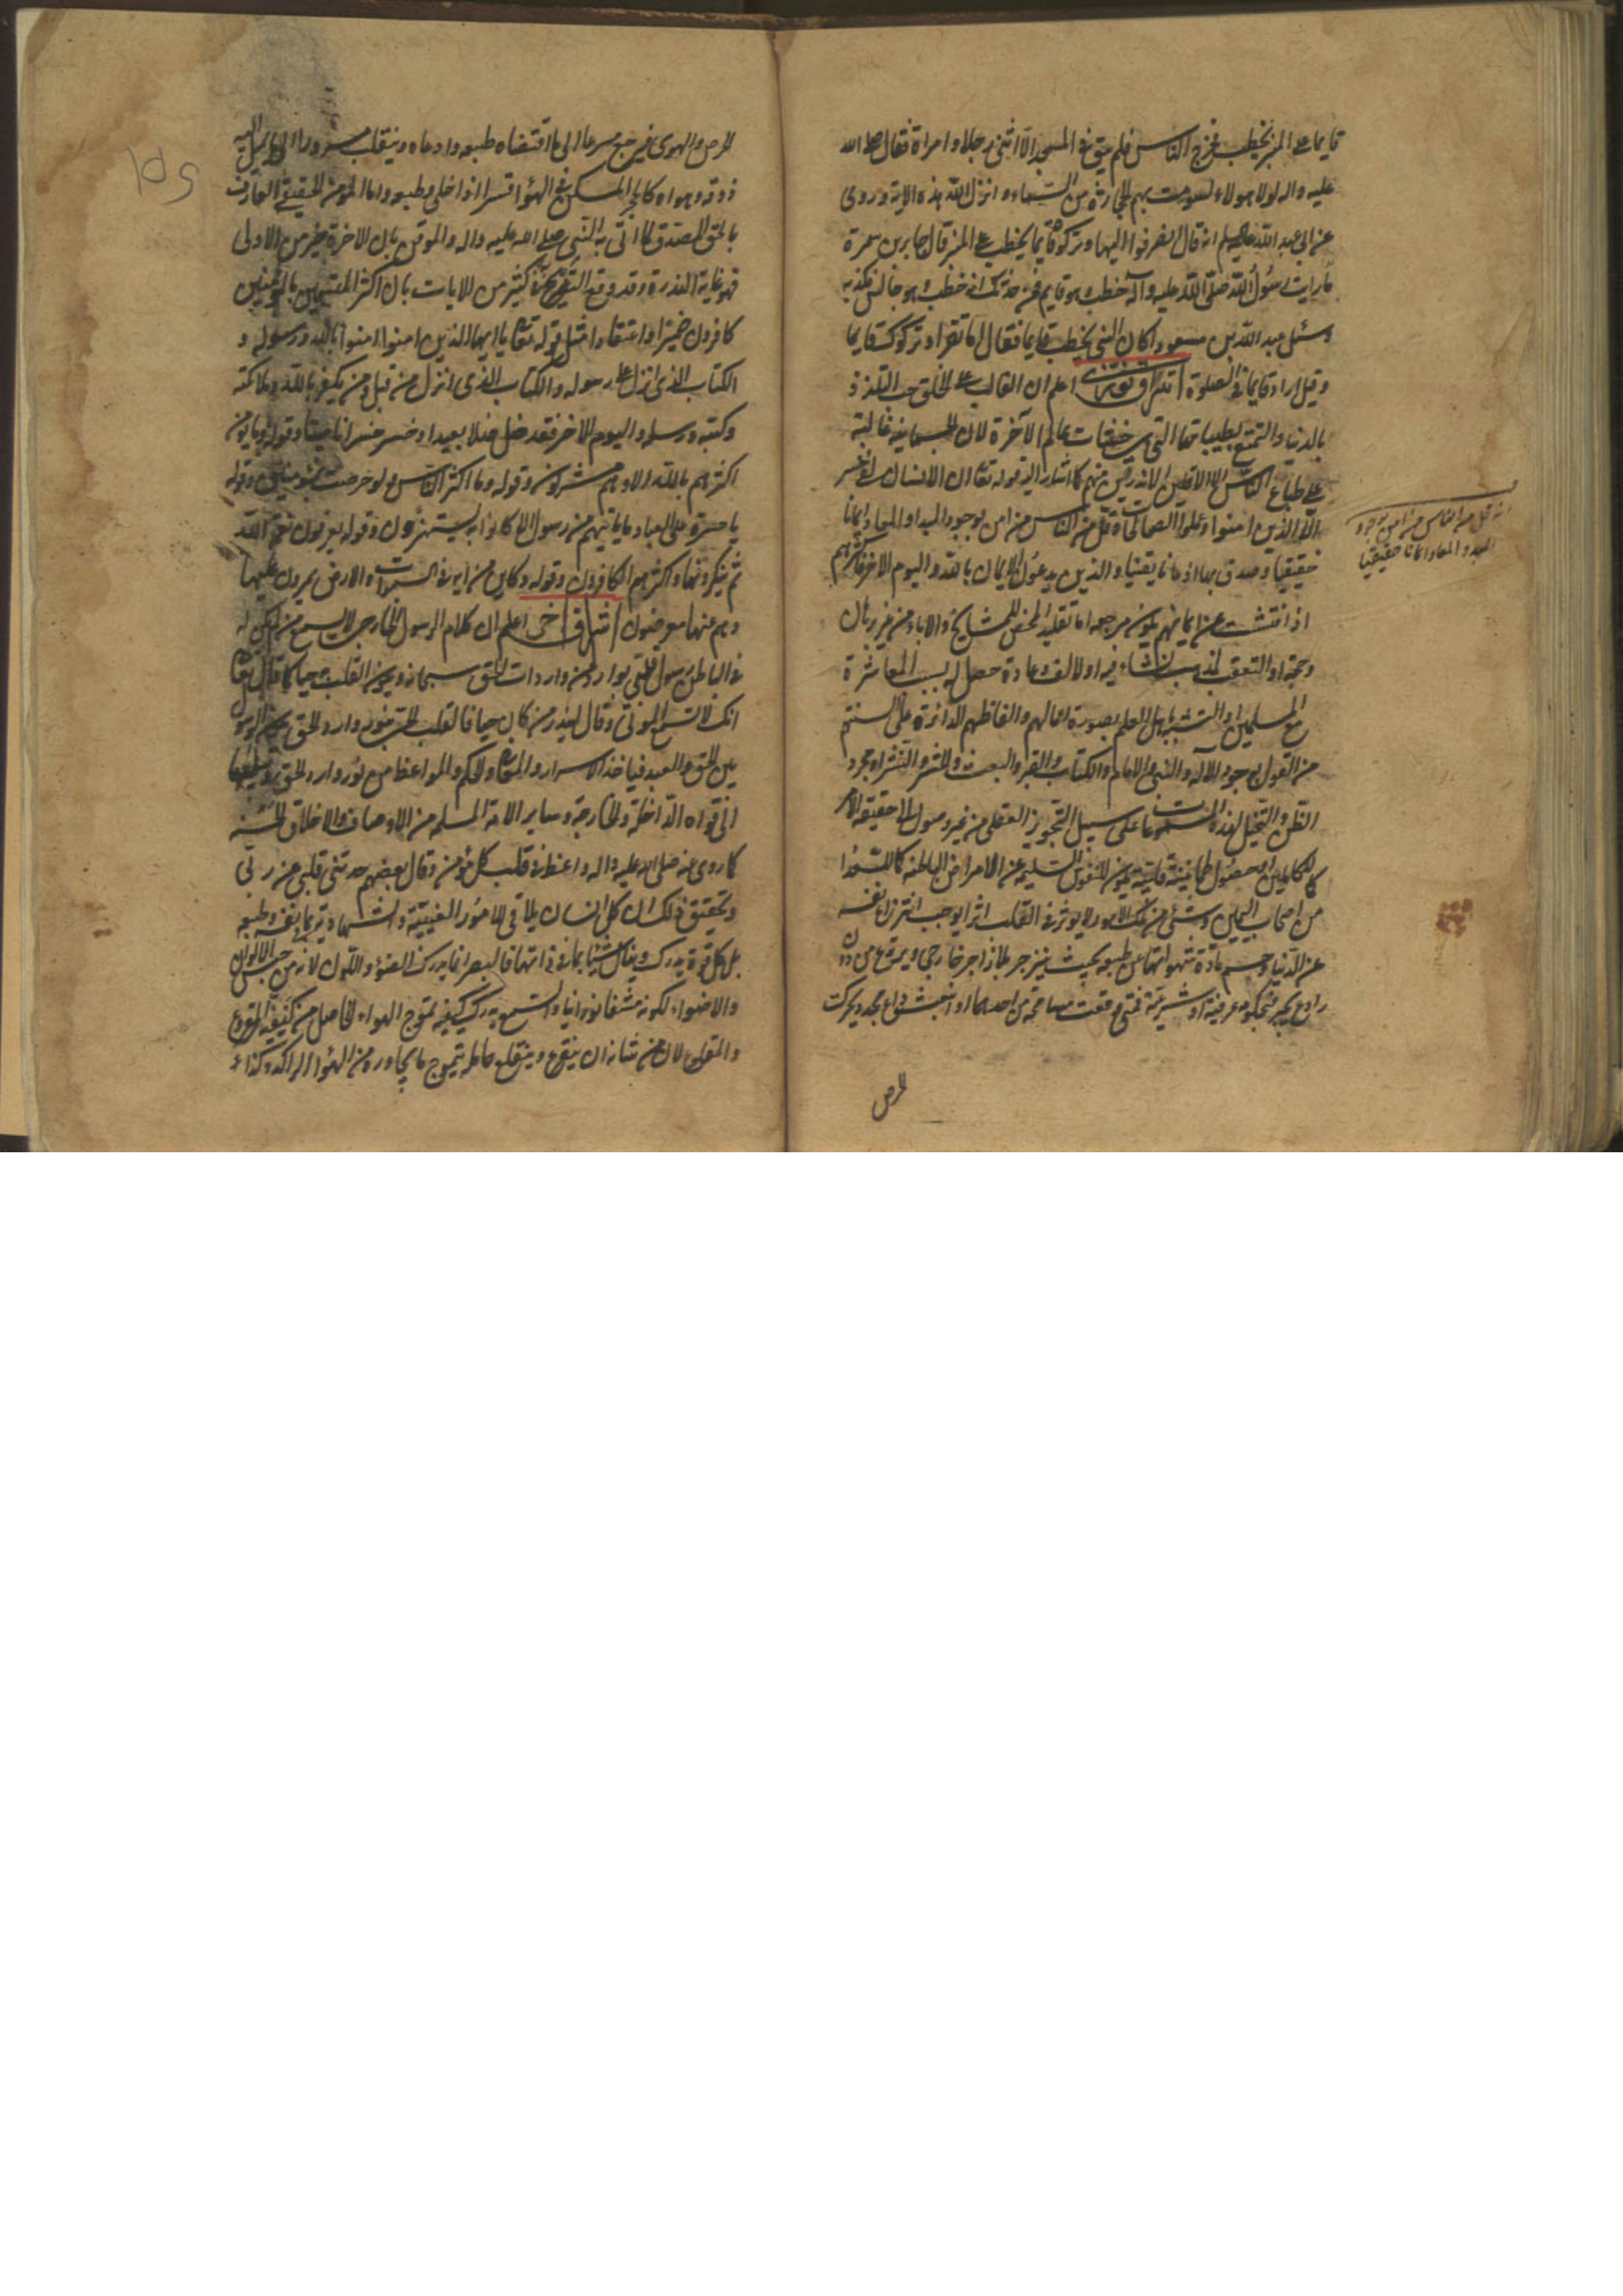 قايما على المنبر يخطب فخرج الناس فلم يبق في المسجد الا اثنى عشر رجلا وامراة فقال صلى الله
عليه واله لولا هولاء لسومت بهم الحجارة من السماء وانزل الله هذه الاية وروى
عن ابى عبد الله عليه السلم انه قال انصرفوا اليها وتركوك قايما يخطب على المنبر قال جابر بن سمرة
ما رايت رسول الله صلى الله عليه وآله خطب الا وهو قايم فمن حدثك انه خطب وهو جالس فكذبه
وسئل عبد الله بن مسعود اكان النبي يخطب قايما فقال اما تقرا وتركوك قايما
وقيل اراد قايما في الصلوة اشراق اعلم ان الغالب على الخلق حب التلذذ
بالدنيا والتمتع بطيباتها التي هي خبيثات عالم الآخرة لان الجسمانية غالبة
على طباع الناس الا الاقلين الاندرين منهم كما اشار اليه قوله تعا ان الانسان لفى خسر
الا الذين امنوا وعملوا الصالحات وقل من الناس من امن بوجود المبدا والمعاد ايمانا
حقيقيا وصدق بها اذعانا يقينيا والذين يدعون الايمان بالله واليوم الاخر فاكثرهم
اذا فتشت عن ايمانهم يكون مرجعه اما تقليد المحض للمشايخ والاباء من غير برهان
وحجة او التعقب لمذهب نشاء فيه اولالف وعادة حصل له بسبب المعاشرة
مع المسلمين او التشبه باهل العلم بصورة اقوالهم والفاظهم الدائرة على السنتهم
من القول بوجود الآله والنبى والامام والكتاب والقبر والبعث والحشر والنشر او مجرد
الظن والتخيل لهذه على سبيل التجويز العقلى من غير وصول الى حقيقة الامر
كالكاملين او حصول طمانينة قلبية يكون للنفوس السليمة عن الامراض الباطنة كالسعدا
من اصحاب اليمين وشئ من تلك الامور لا يوثر في القلب اثرا يوجب انتزاع نفسه
عن الدنيا وحسم مادة شهواتها عن طبعه بحيث ينزجر بلا زاجر خارجى ويرتدع من دون
رادع بجبر محكومة عرفية او شرعية فمتى وقعت مسامحة من احدهما او انبعث داع مجدد يحرك
الحرص
انه قل من الناس من امن بوجود
المبدا والمعاد ايمانا حقيقيا
الحرص والهوى فيرجع مسرعا الى ما اقتضاه طبعه وادعاه وينقلب مسرورا الى ما يميل اليه
ذوقه وهواه كالحجر المسكن في الهواء قسرا اذا خلى وطبعه واما المومن الحقيقى العارف
بالحق المصدق لما اتى به النبى صلى الله عليه واله والموقن بان الاخرة خير من الاولى
فهو في غاية الندرة وقد وقع التصريح في كثير من الايات بان اكثر المتسمين بالمومنين
كافرون ضميرا واعتقادا مثل قوله تعا يا ايها الذين امنوا امنوا بالله ورسوله و
الكتاب الذى نزل على رسوله والكتاب الذى انزل من قبل ومن يكفر بالله وملائكته
وكتبه ورسله واليوم الاخر فقد ضل ضلالا بعيدا وخسر خسرانا مبينا وقوله وما يومن
اكثرهم بالله الا وهم مشركون وقوله وما اكثر الناس ولو حرصت بمومنين وقوله
يا حسرة على العباد ما ياتيهم من رسول الا كانوا به يستهزؤن وقوله يعرفون نعمة الله
ثم ينكرونها واكثرهم الكافرون وقوله وكاين من اية في السموات والارض يمرون عليها
وهم عنها معرضون اشراق اخر اعلم ان كلام الرسول الخارجى لا يسمع من لم يكن له
في الباطن رسول يتلقى بوارده من واردات الحق سبحانه ويكون القلب حيا كما قال تعا
انك لا تسمع الموتى وقال لينذر من كان حيا فالقلب الحى بنور وارد الحق يكون الرسول
بين الحق والعبد فياخذ الاسرار والمعانى والحكم والمواعظ من نور وارد الحق ويبلغها
الى قواه الداخلة والخارجة وساير الامة المسلمة من الاوصاف والاخلاق الحسنة
كما روى عنه صلى الله عليه واله واعظ الله في قلب كل مومن وقال بعضهم حدثنى قلبى عن ربى
وتحقيق ذلك ان كل انسان يلاقى الامور الغيبية والشهادية بما في نفسه وطبعه
بل كل قوة يدرك وينال شيئا بما في ذاتها فالبصر انما يدرك الضوء واللون لانه من جنس الالوان
والاضواء لكونه مشفا نورانيا والسمع يدرك كيفية تموج الهواء الحاصل من كيفية المقروع
والمقلوع لان من شانه ان ينقرع وينقلع حامله بتموج ما يجاوره من الهواء الراكد وكذا